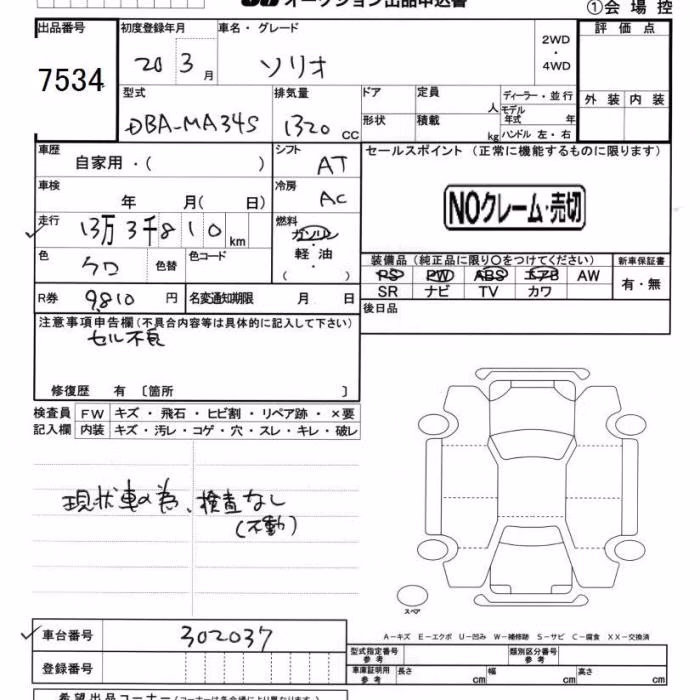 オークション出品申込書
①会場控
出品番号
7534
初度登録年月
20 3月
車名・グレード
ソリオ
2WD
・
4WD
評価点
外装 内装
型式
DBA-MA34S
排気量
1320 CC
ドア
定員
人
ディーラー・並行
形状
積載
kg
モデル年式 年
ハンドル 左・右
車歴
自家用・( )
シフト
AT
セールスポイント (正常に機能するものに限ります)
NOクレーム・売切
車検
年 月( 日)
冷房
AC
走行
13万3千810km
燃料
ガソリン
・
軽油
・
色
クロ
色替
色コード
装備品(純正品に限り○をつけてください)
新車保証書
PS PW ABS エアB AW
SR ナビ TV カワ
有・無
R券
9,810円
名変通知期限 月 日
後日品
注意事項申告欄(不具合内容等は具体的に記入して下さい)
セル不良
修復歴 有 〔箇所 〕
検査員 FW キズ・飛石・ヒビ割・リペア跡・×要
記入欄 内装 キズ・汚レ・コゲ・穴・スレ・キレ・破レ
現状車の為、検査なし
(不動)
スペア
車台番号
302037
A-キズ E-エクボ U-凹み W-補修跡 S-サビ C-腐食 XX-交換済
型式指定番号 参考
類別区分番号 参考
登録番号
車庫証明用 参考
長さ cm 幅 cm 高さ cm
希望出品コーナー(コーナーは各会場により異なります)